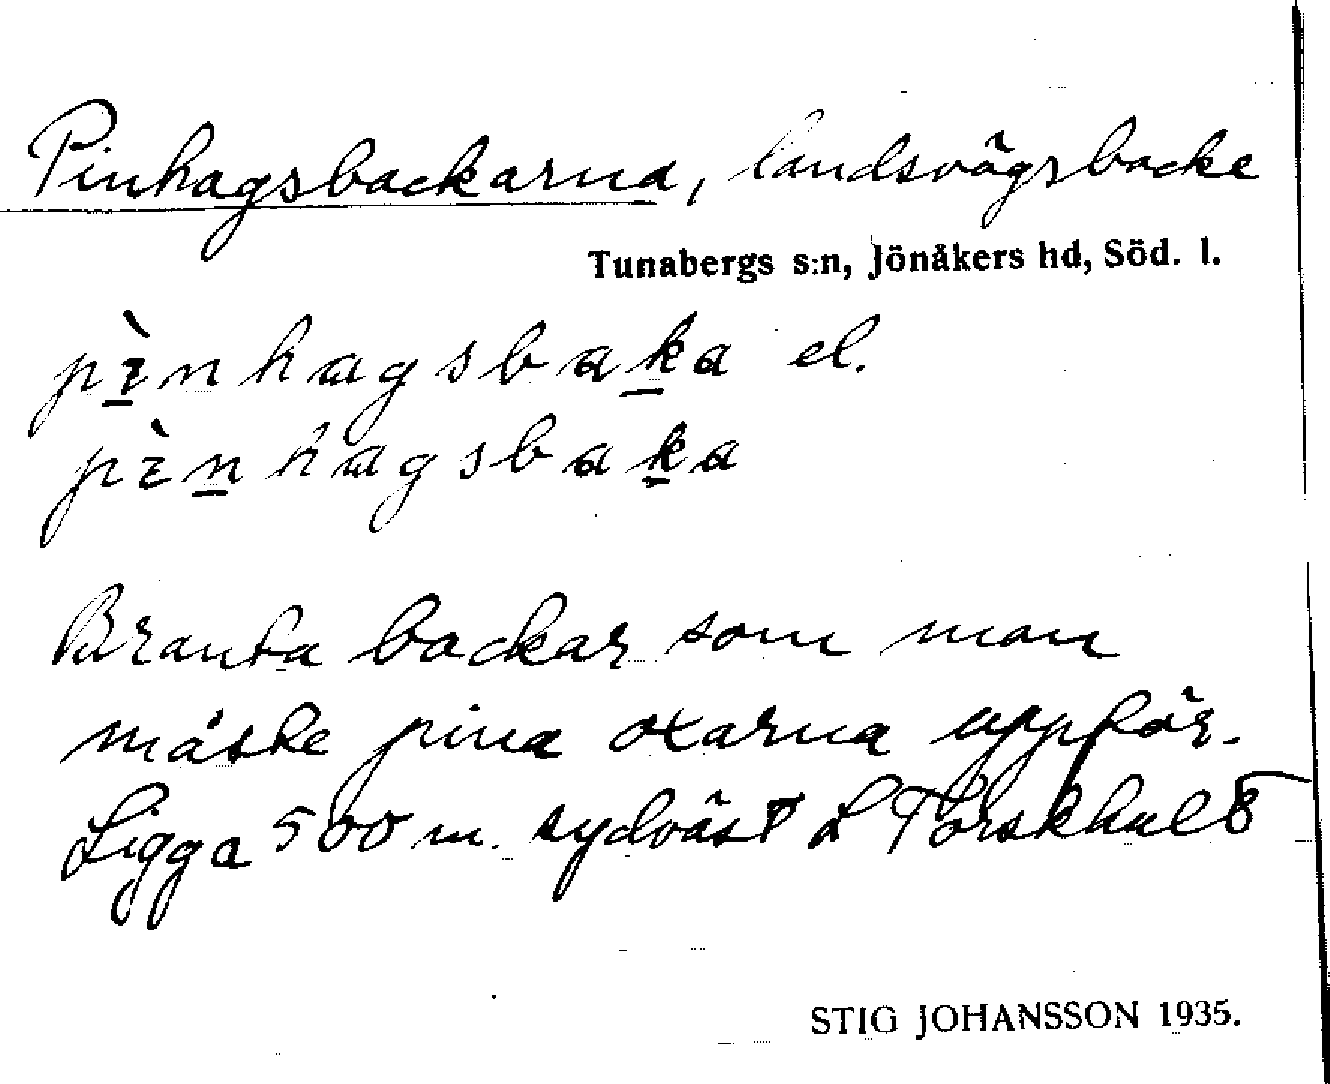 Pinhagsbackarna, landsvägsbacke
Tunabergs s:n, Jönåkers hd, Söd. l.
pìnhagsbaka el.
pìnhagsbaka
Branta backar som man
måste pina oxarna uppför.
Ligga 500 m. sydväst L Torskhult
STIG JOHANSSON 1935.